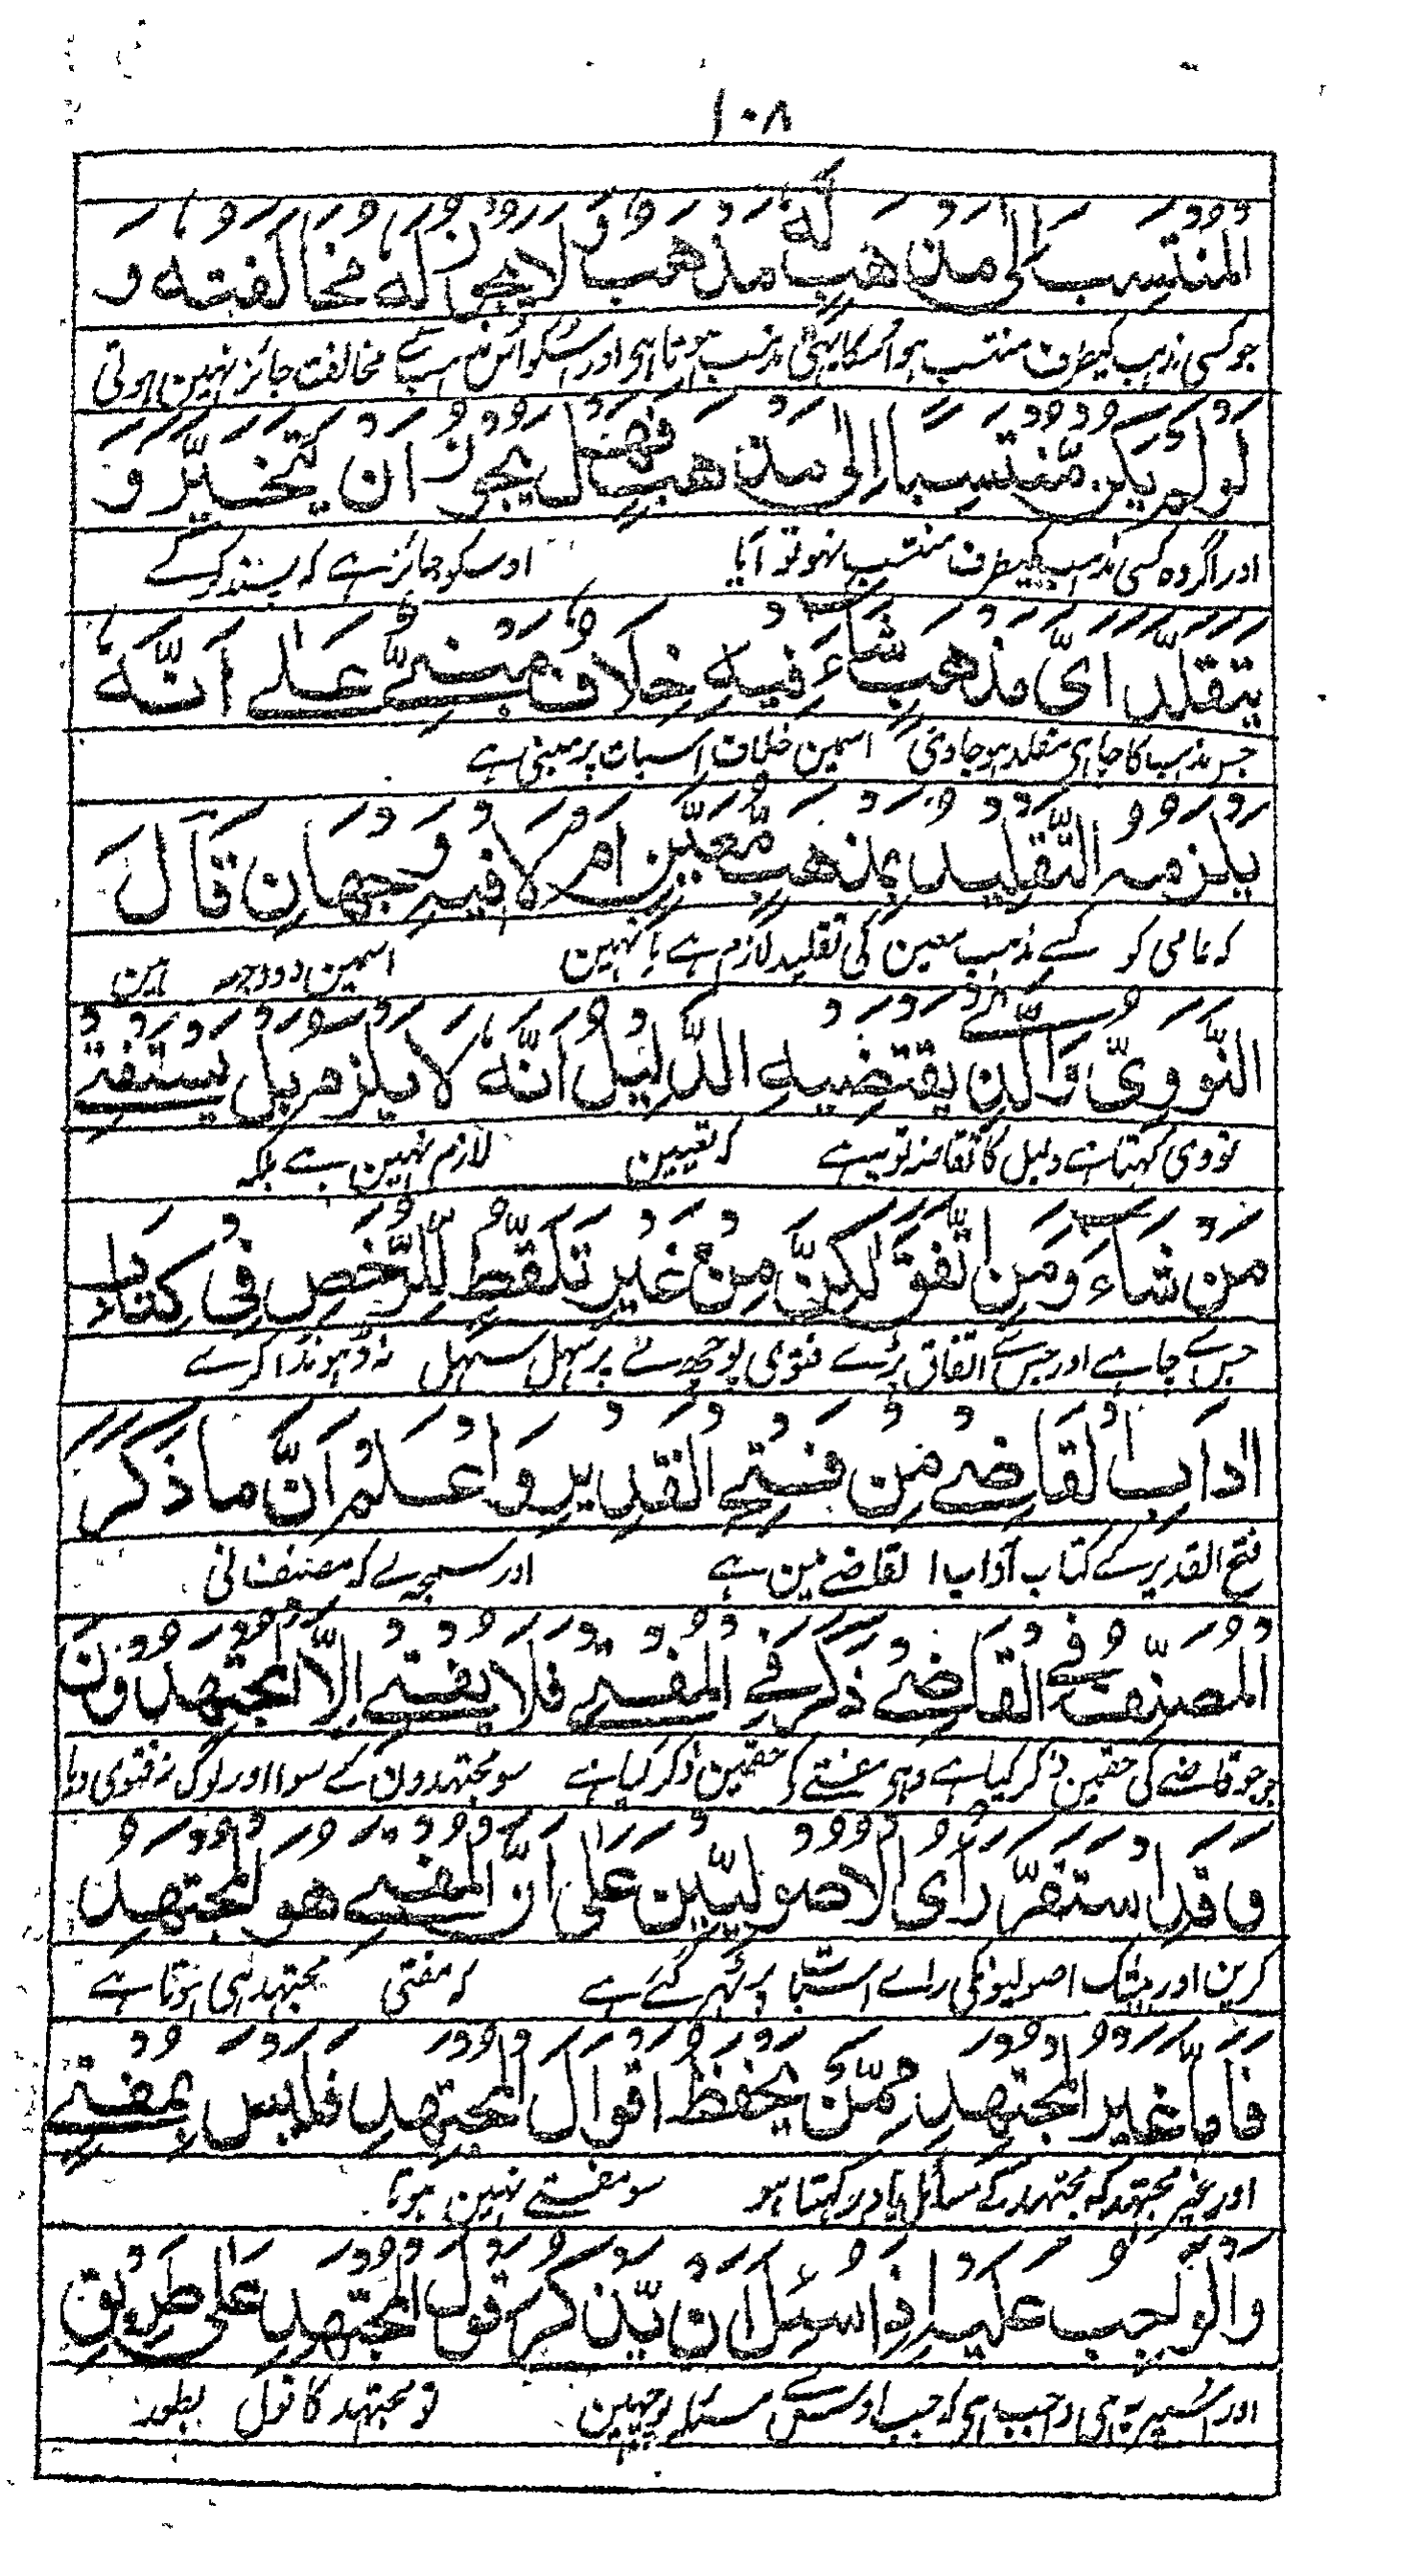 ۱۰۸
المنتسب الى مذهب له مذهب لا يجوز له مخالفته و
جو کسی مذہب کیطرف منتسب ہو اسکا یہی مذہب ہوتا ہی اور اسکو اس مذہب سے مخالفت جائز نہین ہوتی
لو لم يكن منتسبا الى مذهب فهل يجوز ان يتخير و
اور اگر وہ کسی مذہب کیطرف منتسب نہو تو آیا اوسکو جائز ہے کہ پسند کر کے
يتقلد اى مذهب شاء فيه خلاف مبنى على انه
جس مذہب کا چاہی مقلد ہو جاوی اسمین خلاف اسبات پر مبنی ہے
يلزمه التقليد بمذهب معين ام لا فيه وجهان قال
کہ عامی کو کسے مذہب معین کی تقلید لازم ہے یا نہین اسمین دو وجہ ہین
النووى والذى يقتضيه الدليل انه لا يلزم بل يستفتى
نووی کہتا ہے دلیل کا تقاضہ تو یہہ ہے کہ تعیین لازم نہین ہے بلکہ
من شاء ومن اتفق لكن من غير تلقط للرخص فى كتاب
جس سے چاہے اور جس سے اتفاق پڑے فتوی پوچھ لے پر سہل سہل نہ ڈہونڈا کرے
اداب القاضى من فتح القدير واعلم ان ما ذكر
فتح القدیر کے کتاب آداب القاضے مین ہے اور سمجہہ لے کہ مصنف نی
المصنف فى القاضى ذكر فى المفتى فلا يفتى الا المجتهدون
جو جو قاضے کی حقمین ذکر کیا ہے وہی مفتے کی حقمین ذکر کیا ہے سو مجتہدون کے سوا اور لوگ نہ فتوی دیا
وقد استقر راى الاصوليين على ان المفتى هو المجتهد
کرین اور بیشک اصولیونکی راے اسبات پر ٹہر گئے ہے کہ مفتی مجتہد ہی ہوتا ہے
فاما غير المجتهد ممن يحفظ اقوال المجتهد فليس بمفتى
اور غیر مجتہد کہ مجتہد کے مسائل یاد رکہتا ہو سو مفتے نہین ہوتا
والواجب عليه اذا سئل ان يذكر قول المجتهد على طريق
اور اسپر یہ ہی واجب ہی کہ جب اوس سے مسئلے پوچہین تو مجتہد کا قول بطور